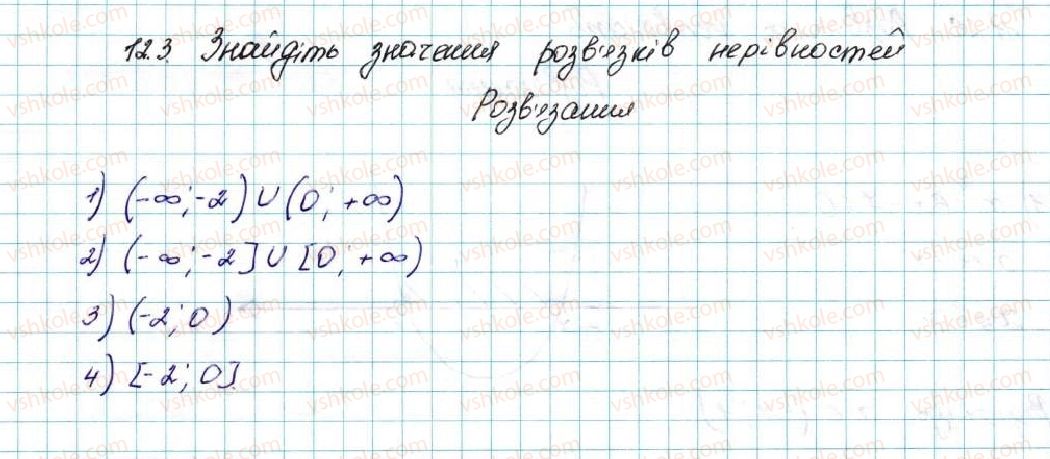 12.3. Знайдіть значення розв'язків нерівностей
Розв'язання
1) (-∞; -2) ∪ (0; +∞)
2) (-∞; -2] ∪ [0; +∞)
3) (-2; 0)
4) [-2; 0].